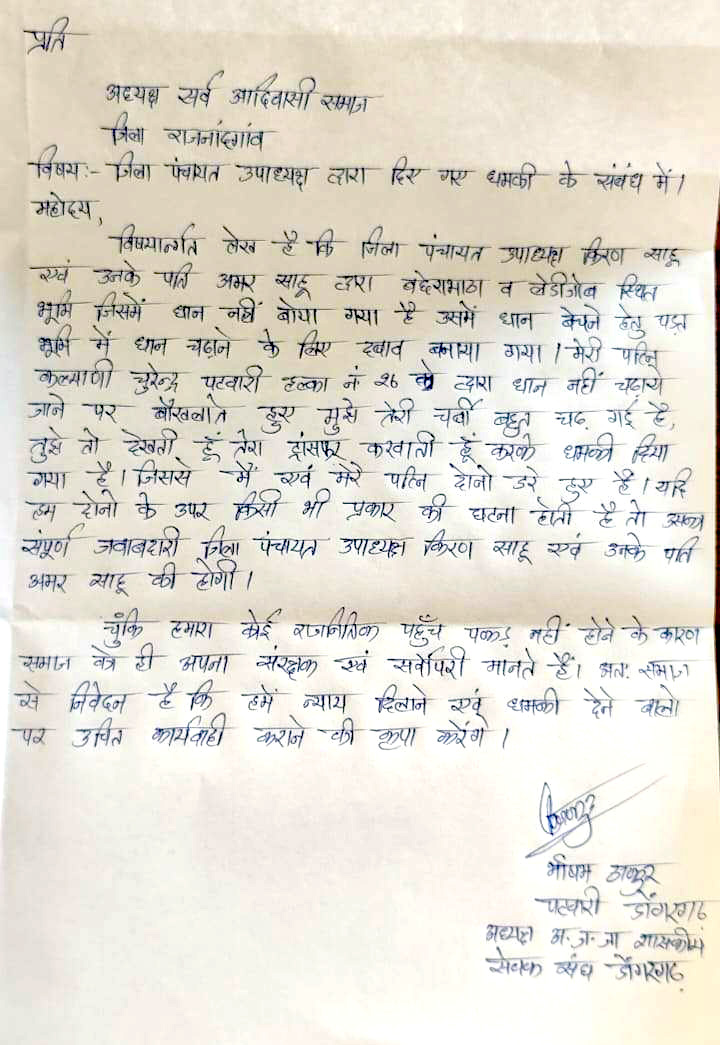 प्रति
अध्यक्ष सर्व आदिवासी समाज
जिला राजनांदगांव
विषय:- जिला पंचायत उपाध्यक्ष द्वारा दिए गए धमकी के संबंध में।
महोदय,
विषयान्तर्गत लेख है कि जिला पंचायत उपाध्यक्ष किरण साहू
एवं उनके पति अमर साहू द्वारा व स्थित
भूमि जिसमें धान नहीं बोया गया है उसमें धान बेचने हेतु पड़त
भूमि में धान चढ़ाने के लिए दबाव बनाया गया। मेरी पत्नि
कल्याणी चुरेन्द्र पटवारी हल्का नं 26 द्वारा धान नहीं चढ़ाये
जाने पर बौखलाते हुए मुझे तेरी चर्बी बहुत चढ़ गई है,
तुझे तो देखती हूँ तेरा ट्रांसफर करवाती हूँ करके धमकी दिया
गया है। जिससे मैं एवं मेरे पत्नि दोनो डरे हुए है। यदि
हम दोनो के उपर किसी भी प्रकार की घटना होती है तो उसका
संपूर्ण जवाबदारी जिला पंचायत उपाध्यक्ष किरण साहू एवं उनके पति
अमर साहू की होगी।
चुंकि हमारा कोई राजनितिक पहुँच पकड़ नहीं होने के कारण
समाज को ही अपना संरक्षक एवं सर्वोपरी मानते हैं। अतः समाज
से निवेदन है कि हमें न्याय दिलाने एवं धमकी देने वालो
पर उचित कार्यवाही कराने की कृपा करेंगे।
भीषम ठाकुर
पटवारी डोंगरगढ़
अध्यक्ष अ.ज.जा शासकीय
सेवक संघ डोंगरगढ़